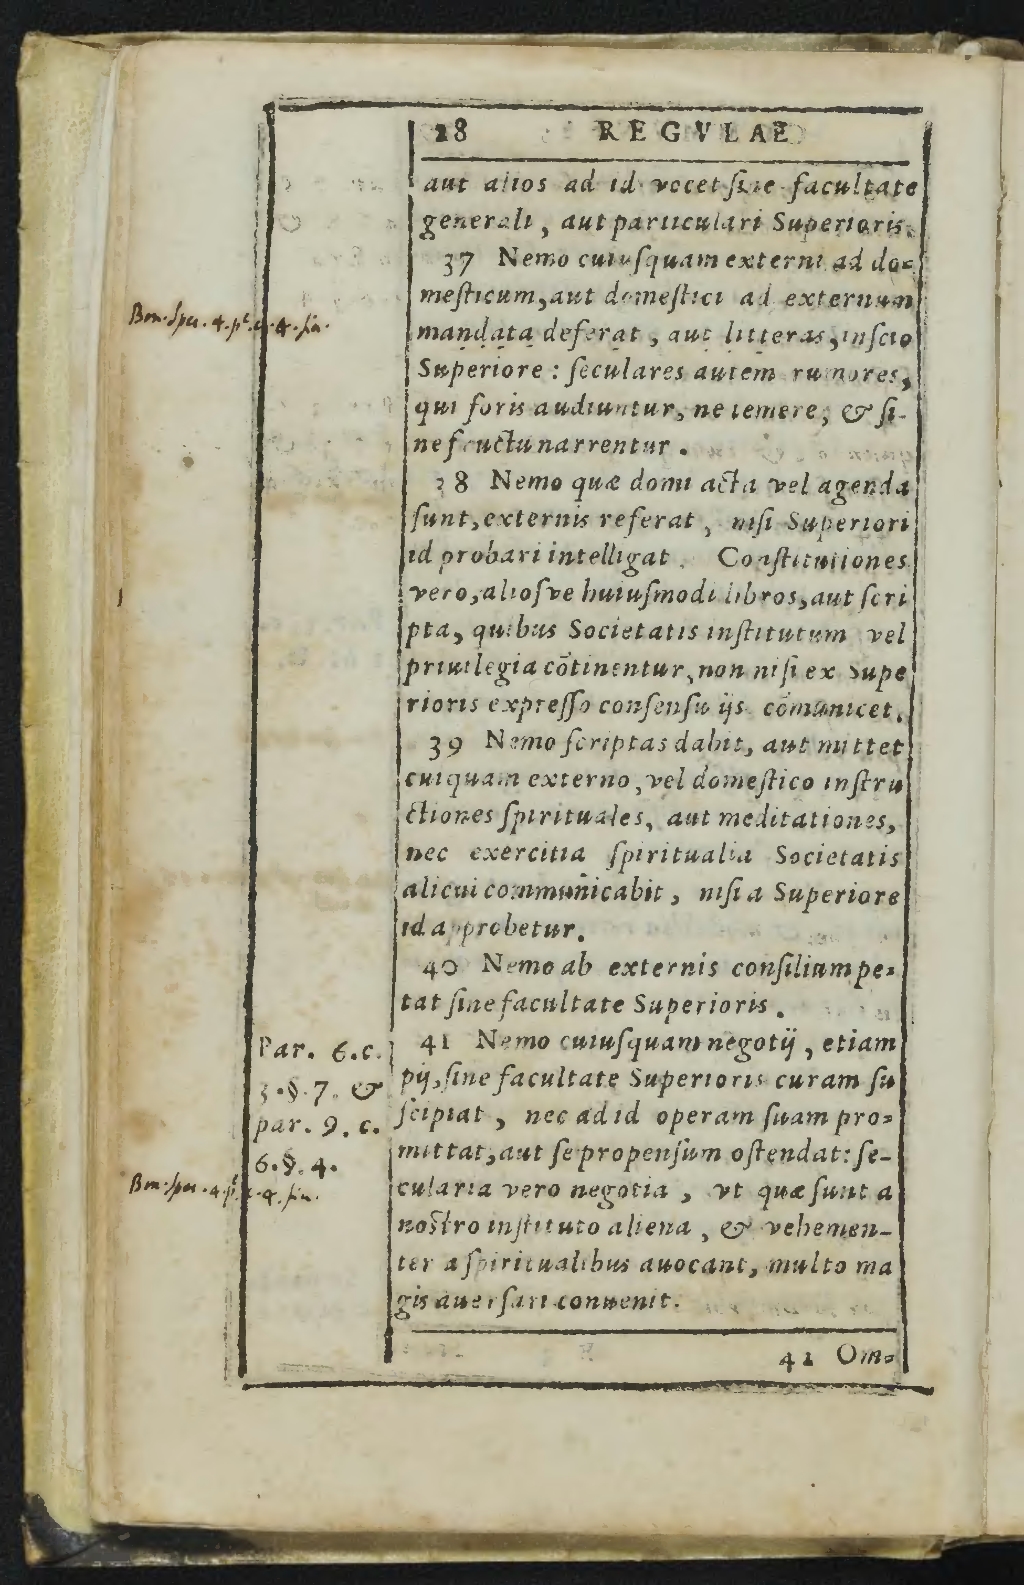 28 REGVLAE
aut alios ad id vocet sine facultate
generali, aut particulari Superioris.
37 Nemo cuiusquam externi ad do=
mesticum, aut domestici ad externum
mandata deferat, aut litteras, inscio
Superiore: seculares autem rumores,
qui foris audiuntur, ne temere, & si-
ne fructu narrentur.
38 Nemo quæ domi acta vel agenda
sunt, externis referat, nisi Superiori
id probari intelligat. Constitutiones
vero, aliosve huiusmodi libros, aut scri
pta, quibus Societatis institutum vel
priuilegia cõtinentur, non nisi ex Supe
rioris expresso consensu ijs cõmunicet.
39 Nemo scriptas dabit, aut mittet
cuiquam externo, vel domestico instru
ctiones spirituales, aut meditationes,
nec exercitia spiritualia Societatis
alicui communicabit, nisi a Superiore
id approbetur.
40 Nemo ab externis consilium pe=
tat sine facultate Superioris.
41 Nemo cuiusquam negotij, etiam
pij, sine facultate Superioris curam su
scipiat, nec ad id operam suam pro=
mittat, aut se propensum ostendat: se-
cularia vero negotia, vt quæ sunt a
nostro instituto aliena, & vehemen-
ter a spiritualibus auocant, multo ma
gis auersari conuenit.
42 Om=
Par. 6. c.
3. §. 7. &
par. 9. c.
6. §. 4.